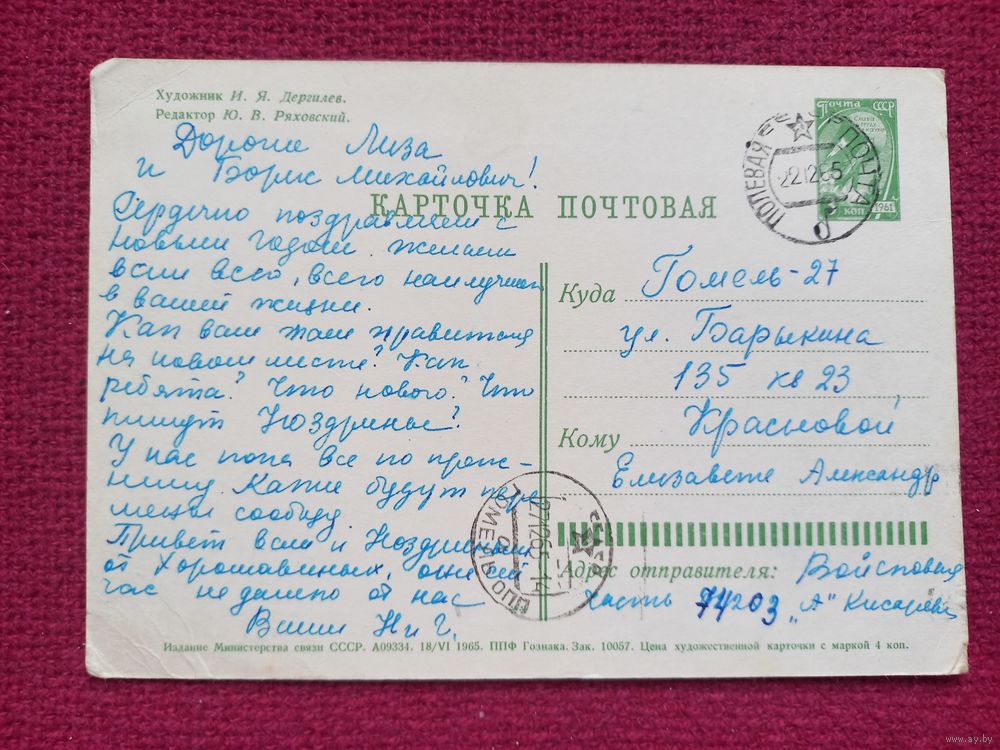 Художник И. Я. Дергилев.
Редактор Ю. В. Ряховский.
Дорогие Лиза
и Борис Михайлович!
Сердечно поздравляем с
новым годом. желаем
всем всего, всего наилучшего
в вашей жизни.
Как вам там нравится
на новом месте? Как
ребята? Что нового? Что
пишут Ноздрины?
У нас пока все по преж-
нему. Какие будут пере
мены сообщу.
Привет всем и Ноздриным
от Хорошавиных, они сей
час недалеко от нас
Ваши Н и Г.
Почта СССР
1961
КОП
ПОЛЕВАЯ ПОЧТА
221265
КАРТОЧКА ПОЧТОВАЯ
Куда Гомель-27
ул. Барыкина
135 кв 23
Кому Красновой
Елизавете Александр
ГОМЕЛЬ
271265
Адрес отправителя: Войсковая
часть 74203 "А" Кисарева
Издание Министерства связи СССР. А09334. 18/VI 1965. ППФ Гознака. Зак. 10057. Цена художественной карточки с маркой 4 коп.
www.ay.by